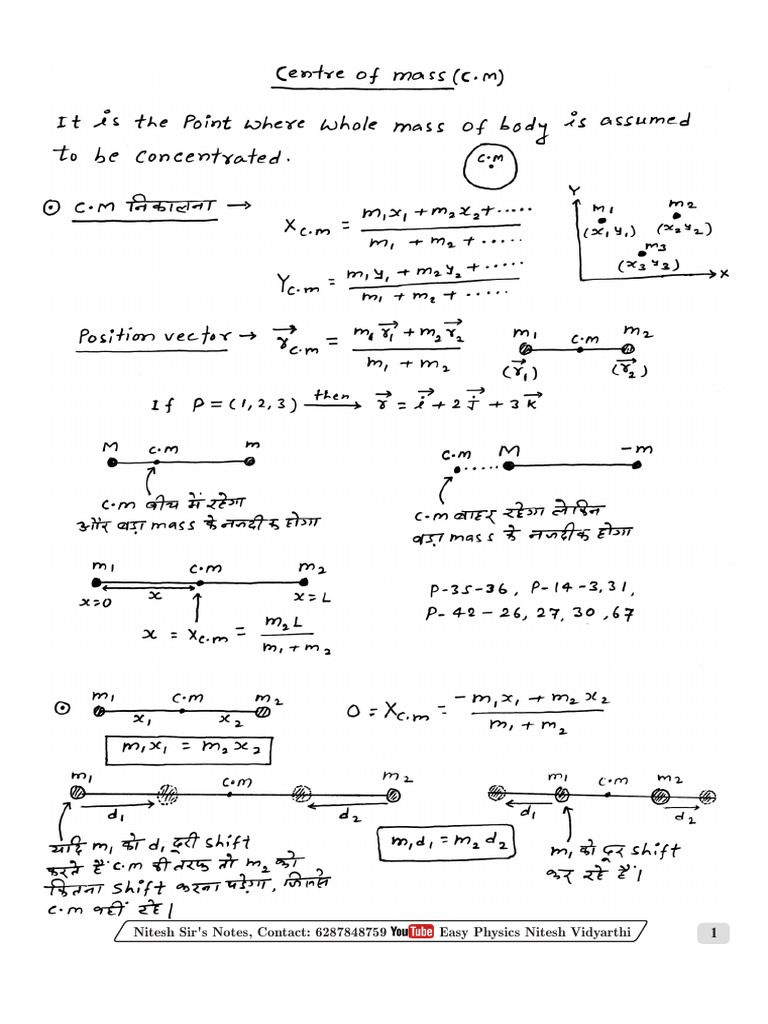 Centre of mass (C.m)
It is the Point where whole mass of body is assumed
to be concentrated.
C.M
⊙ C.M निकालना →
X_{C.m} = \frac{m_1x_1 + m_2x_2 + .....}{m_1 + m_2 + .....}
Y_{C.m} = \frac{m_1y_1 + m_2y_2 + .....}{m_1 + m_2 + .....}
Y
m_1 m_2
(x_1 y_1) (x_2 y_2)
m_3
(x_3 y_3)
X
Position vector → \vec{r}_{C.m} = \frac{m_1\vec{r_1} + m_2\vec{r_2}}{m_1 + m_2}
m_1 C.M m_2
(\vec{r_1}) (\vec{r_2})
If P = (1, 2, 3) then → \vec{r} = \vec{i} + 2\vec{j} + 3\vec{k}
M C.M m
C.M बीच में रहेगा
और बड़ा mass के नजदीक होगा
C.M M -m
C.M बाहर रहेगा लेकिन
बड़ा mass के नजदीक होगा
m_1 C.M m_2
x=0 x x=L
x = X_{C.m} = \frac{m_2 L}{m_1 + m_2}
P-35-36, P-14-3, 31,
P-42-26, 27, 30, 67
⊙ m_1 C.M m_2
x_1 x_2
m_1x_1 = m_2x_2
0 = X_{C.m} = \frac{-m_1x_1 + m_2x_2}{m_1 + m_2}
m_1 C.M m_2
d_1 d_2
यदि m_1 को d_1 दूरी shift
करते हैं C.M की तरफ तो m_2 को
कितना shift करना पड़ेगा, जिससे
C.M वहीं रहे।
m_1 C.M m_2
d_1 d_2
m_1d_1 = m_2d_2
m_1 को दूर shift
कर रहे हैं।
Nitesh Sir's Notes, Contact: 6287848759 YouTube Easy Physics Nitesh Vidyarthi
1